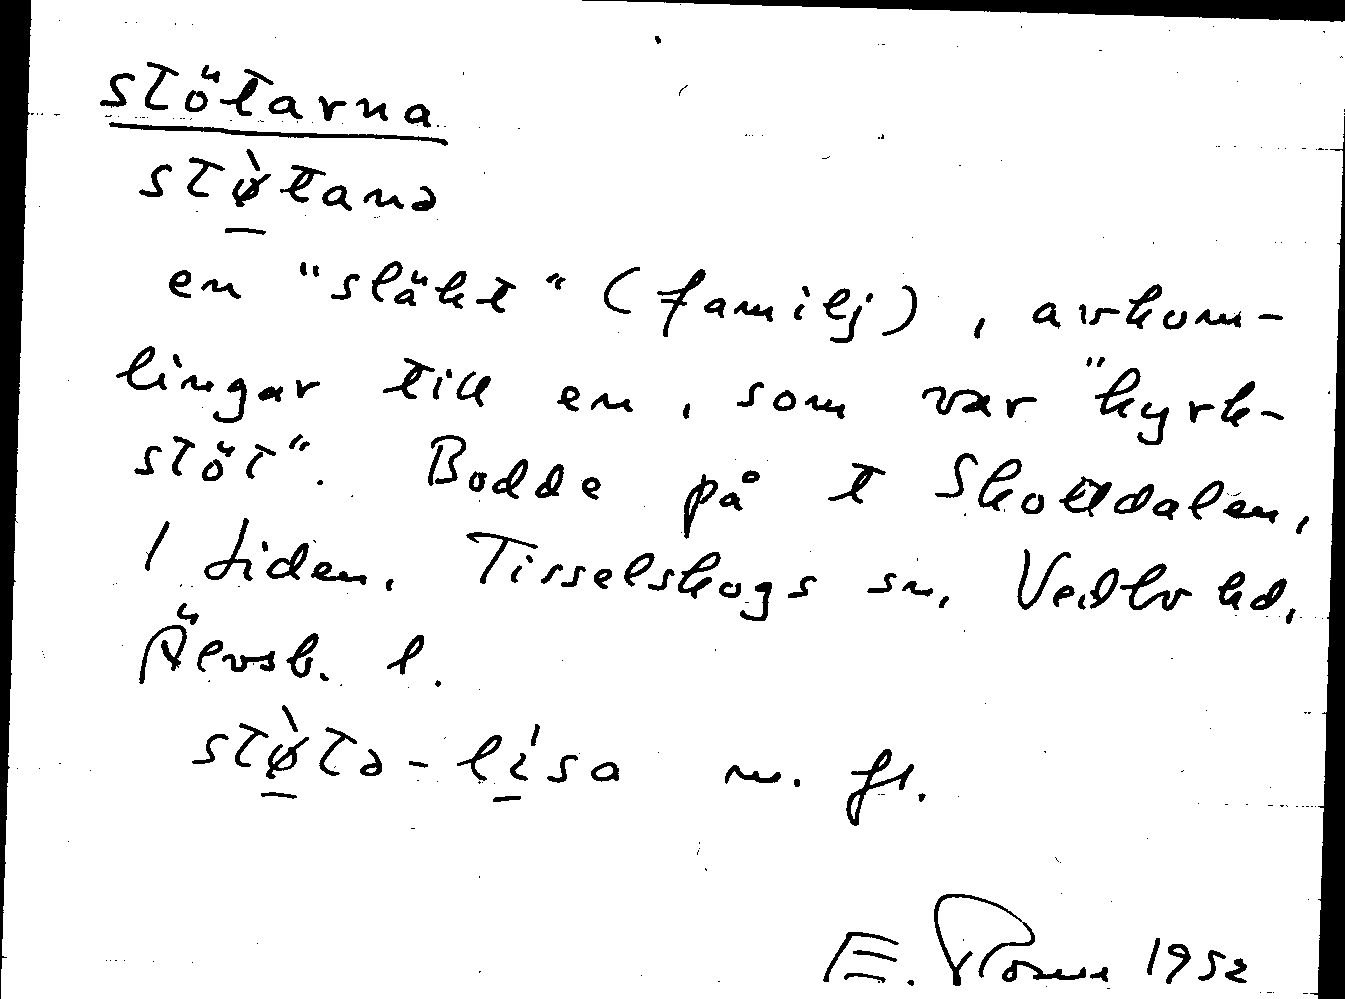 stötarna
stø̀tanə
en "släkt" (familj), avkom-
lingar till en, som var "kyrk-
stöt". Bodde på t Skottdalen,
1 tiden. Tisselskogs sn, Vedbo hd,
Älvsb. l.
stø̀tə-lísa m. fl.
E. 1952